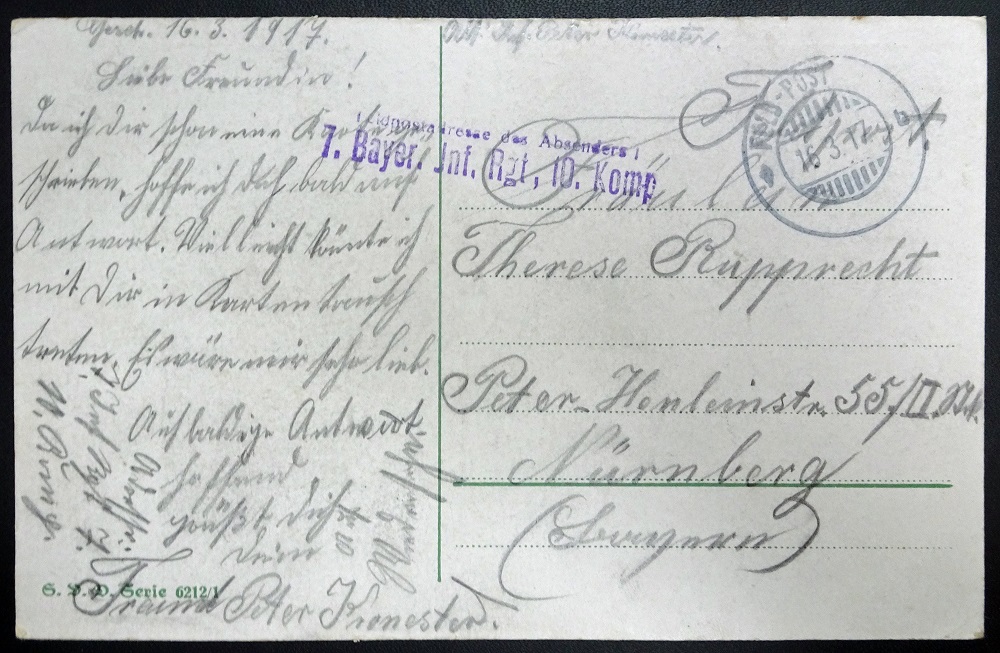 Gesch. 16.3.1917.
Liebe Freundin!
Da ich Dir schon eine Karte ge-
schrieben, hoffe ich doch bald auf
Antwort. Vielleicht könnte ich
mit Dir in Kartentausch
treten. Es wäre mir sehr lieb.
Auf baldige Antwort
hoffend
grüßt Dich
Dein
Freund Peter Kronester.
Adresse:
Inf. Rgt. 7.
10. Komp.
S. V. D. Serie 6212/1
Abs. Inf. Peter Kronester
Feldpostadresse des Absenders:
7. Bayer. Inf. Rgt, 10. Komp
FELD-POST
16.3.17
Fräulein
Therese Rupprecht
Peter-Henleinstr. 55/II
Nürnberg
(Bayern)